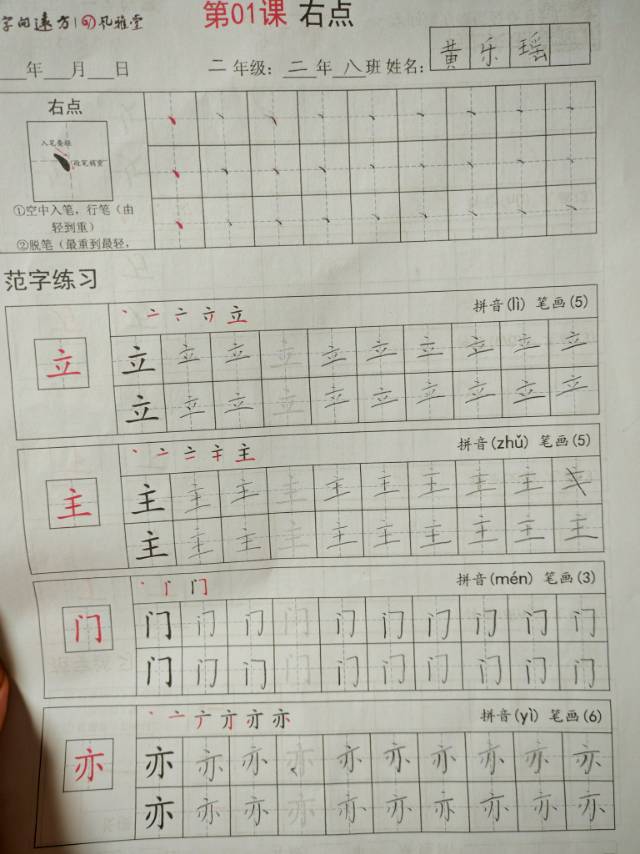 字的远方 孔雅堂
第01课 右点
年 月 日 二 年级: 二 年 八 班 姓名: 黄 乐 瑶
右点
入笔要轻
收笔稍重
①空中入笔，行笔（由
轻到重）
②脱笔（最重到最轻，
范字练习
拼音(lì) 笔画(5)
立 立 立 立 立 立 立 立 立 立 立
立 立 立 立 立 立 立 立 立 立
拼音(zhǔ) 笔画(5)
主 主 主 主 主 主 主 主 主 主 主
主 主 主 主 主 主 主 主 主 主
拼音(mén) 笔画(3)
门 门 门 门 门 门 门 门 门 门 门
门 门 门 门 门 门 门 门 门 门
拼音(yì) 笔画(6)
亦 亦 亦 亦 亦 亦 亦 亦 亦 亦 亦
亦 亦 亦 亦 亦 亦 亦 亦 亦 亦